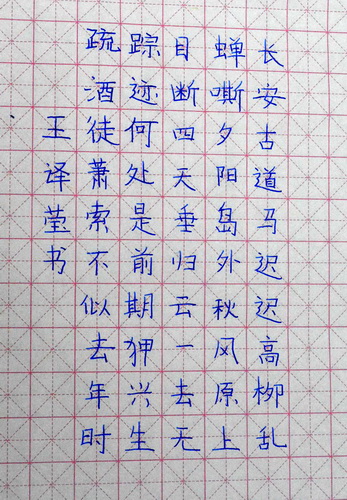 长安古道马迟迟高柳乱
蝉嘶夕阳岛外秋风原上
目断四天垂归云一去无
踪迹何处是前期狎兴生
疏酒徒萧索不似去年时
王译莹书